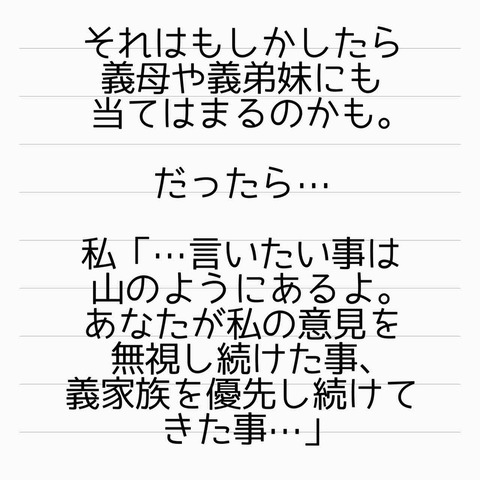 それはもしかしたら
義母や義弟妹にも
当てはまるのかも。
だったら…
私「…言いたい事は
山のようにあるよ。
あなたが私の意見を
無視し続けた事、
義家族を優先し続けて
きた事…」